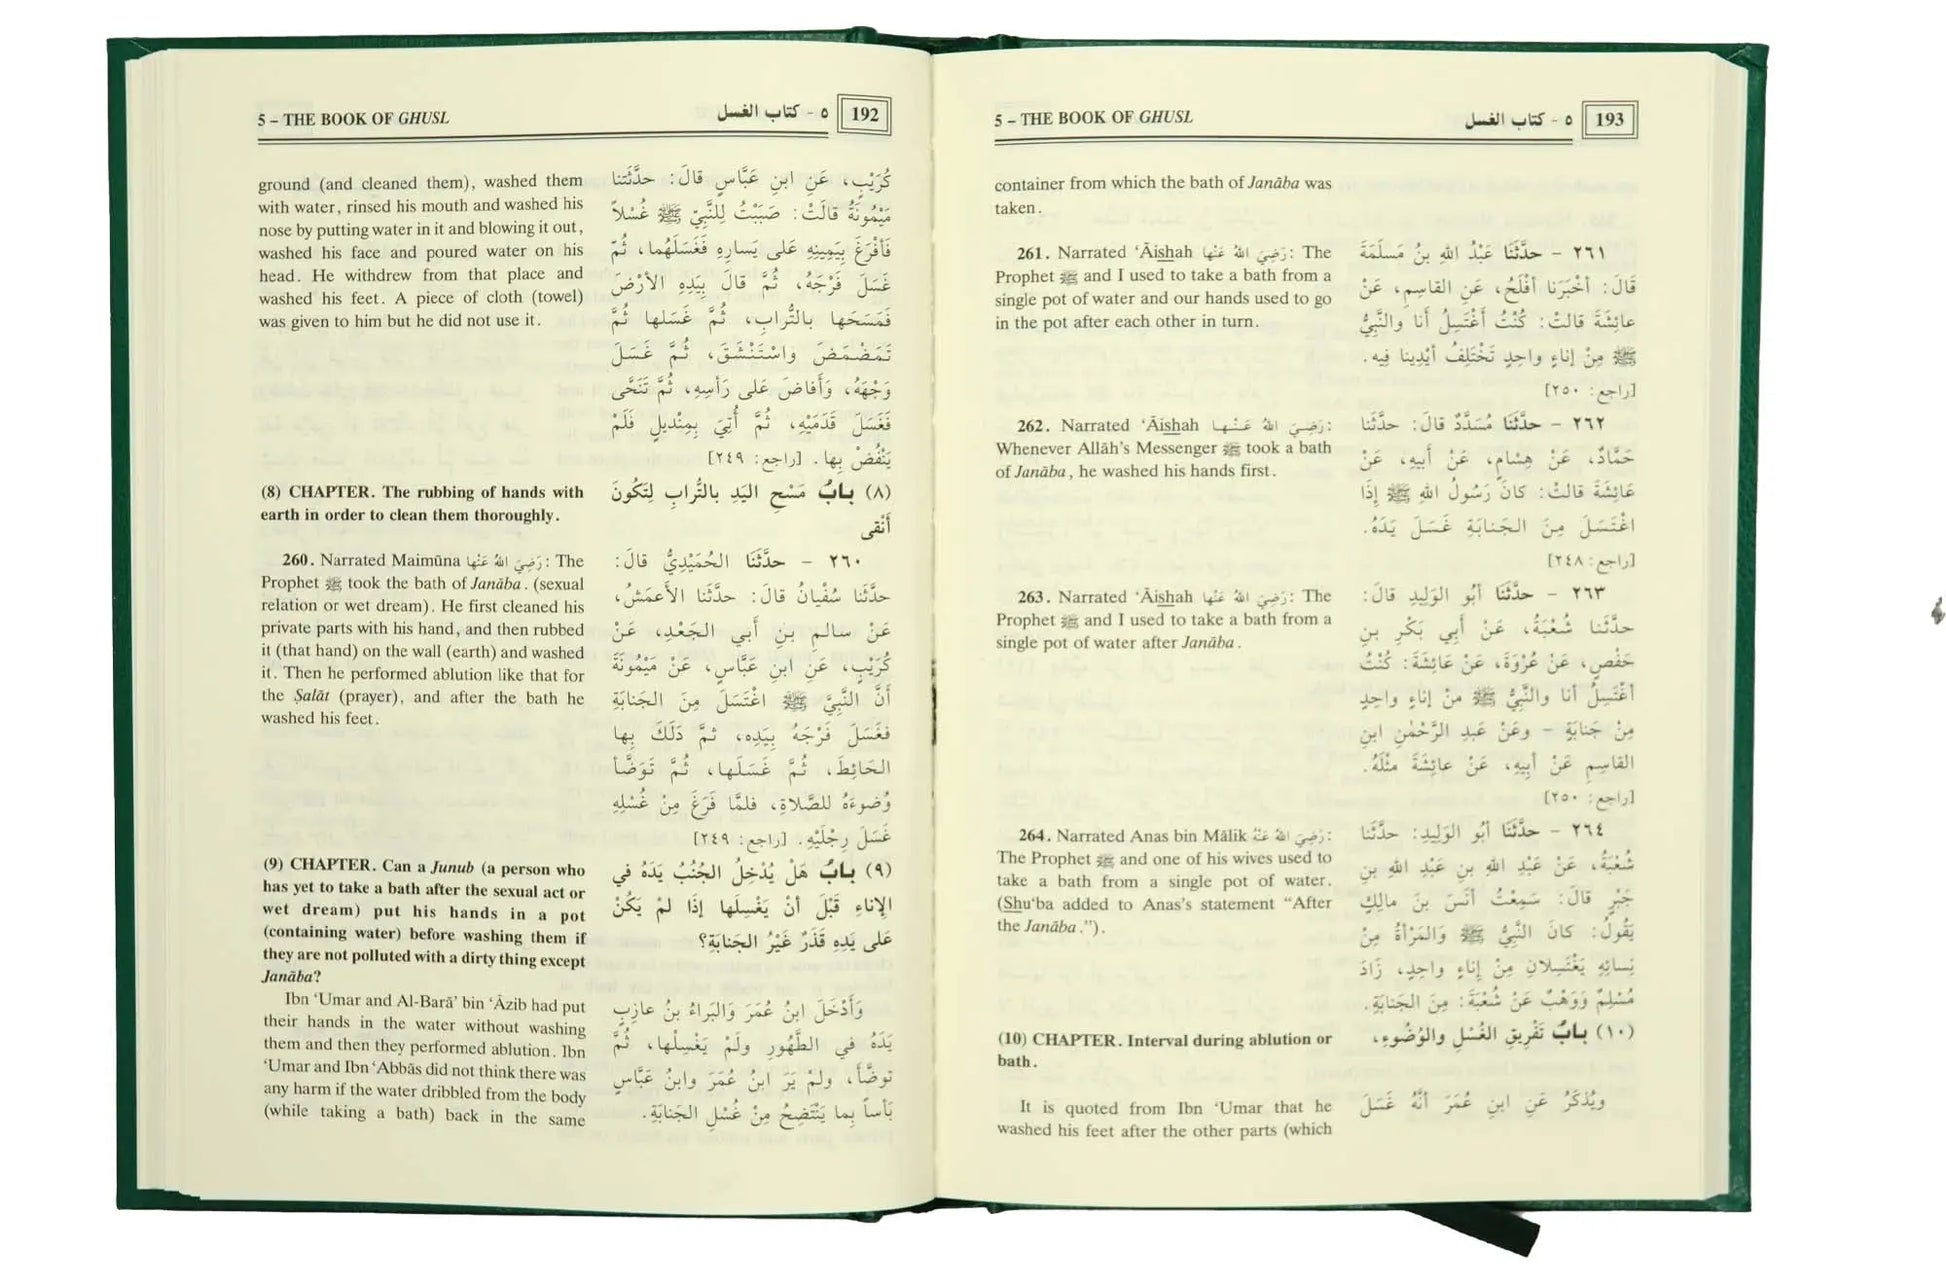 5 – THE BOOK OF GHUSL
٥ - كتاب الغسل
192
ground (and cleaned them), washed them
with water, rinsed his mouth and washed his
nose by putting water in it and blowing it out,
washed his face and poured water on his
head. He withdrew from that place and
washed his feet. A piece of cloth (towel)
was given to him but he did not use it.
(8) CHAPTER. The rubbing of hands with
earth in order to clean them thoroughly.
260. Narrated Maimūna رَضِيَ اللهُ عَنْها: The
Prophet ﷺ took the bath of Janāba. (sexual
relation or wet dream). He first cleaned his
private parts with his hand, and then rubbed
it (that hand) on the wall (earth) and washed
it. Then he performed ablution like that for
the Ṣalāt (prayer), and after the bath he
washed his feet.
(9) CHAPTER. Can a Junub (a person who
has yet to take a bath after the sexual act or
wet dream) put his hands in a pot
(containing water) before washing them if
they are not polluted with a dirty thing except
Janāba?
Ibn ‘Umar and Al-Barā’ bin ‘Āzib had put
their hands in the water without washing
them and then they performed ablution. Ibn
‘Umar and Ibn ‘Abbās did not think there was
any harm if the water dribbled from the body
(while taking a bath) back in the same
كُرَيْبٍ، عَنِ ابنِ عَبَّاسٍ قالَ: حدَّثَتنا
مَيْمُونَةُ قالَتْ: صَبَبْتُ لِلنَّبِيِّ ﷺ غُسْلاً
فَأفْرَغَ بِيَمِينِهِ عَلى يَسارِهِ فَغَسَلَهُما، ثُمَّ
غَسَلَ فَرْجَهُ، ثُمَّ قالَ بِيَدِهِ الأرْضَ
فَمَسَحَها بالتُّرابِ، ثُمَّ غَسَلها ثُمَّ
تَمَضْمَضَ واسْتَنْشَقَ، ثُمَّ غَسَلَ
وَجْهَهُ، وَأفاضَ عَلى رَأسِهِ، ثُمَّ تَنَحَّى
فَغَسَلَ قَدَمَيْهِ، ثُمَّ أُتِيَ بِمِنْديلٍ فَلَمْ
يَنْفُضْ بِها. [راجع: ٢٤٩]
(٨) بابُ مَسْحِ اليَدِ بالتُّرابِ لِتَكُونَ
أنْقى
٢٦٠ - حدَّثَنَا الحُمَيْدِيُّ قالَ:
حدَّثَنا سُفْيانُ قالَ: حدَّثَنا الأعمَشُ،
عَنْ سالمِ بنِ أبي الجَعْدِ، عَنْ
كُرَيْبٍ، عَنِ ابنِ عَبَّاسٍ، عَنْ مَيْمُونَةَ
أنَّ النَّبِيَّ ﷺ اغْتَسَلَ مِنَ الجَنابَةِ
فغَسَلَ فَرْجَهُ بِيَدِه، ثمَّ دَلَكَ بِها
الحَائِطَ، ثُمَّ غَسَلَها، ثُمَّ تَوَضَّأ
وُضوءَهُ للصَّلاةِ، فلمَّا فَرَغَ مِنْ غُسْلِهِ
غَسَلَ رِجْلَيْهِ. [راجع: ٢٤٩]
(٩) بابٌ هَلْ يُدْخِلُ الجُنُبُ يَدَهُ في
الإناءِ قَبْلَ أنْ يَغْسِلَها إذَا لمْ يَكُنْ
عَلى يَدِهِ قَذَرٌ غَيْرُ الجَنابَةِ؟
وَأَدْخَلَ ابنُ عُمَرَ وَالبَراءُ بنُ عازِبٍ
يَدَهُ في الطَّهُورِ ولَمْ يَغْسِلْها، ثُمَّ
توضَّأ، ولمْ يَرَ ابنُ عُمَرَ وابنُ عَبَّاسٍ
بَأساً بِما يَنْتَضِحُ مِنْ غُسْلِ الجَنابَةِ.
5 – THE BOOK OF GHUSL
٥ - كتاب الغسل
193
container from which the bath of Janāba was
taken.
261. Narrated ‘Āishah رَضِيَ اللهُ عَنْها: The
Prophet ﷺ and I used to take a bath from a
single pot of water and our hands used to go
in the pot after each other in turn.
262. Narrated ‘Āishah رَضِيَ اللهُ عَنْها:
Whenever Allāh’s Messenger ﷺ took a bath
of Janāba, he washed his hands first.
263. Narrated ‘Āishah رَضِيَ اللهُ عَنْها: The
Prophet ﷺ and I used to take a bath from a
single pot of water after Janāba.
264. Narrated Anas bin Mālik رَضِيَ اللهُ عَنْهُ:
The Prophet ﷺ and one of his wives used to
take a bath from a single pot of water.
(Shu‘ba added to Anas’s statement “After
the Janāba.”).
(10) CHAPTER. Interval during ablution or
bath.
It is quoted from Ibn ‘Umar that he
washed his feet after the other parts (which
٢٦١ - حدَّثَنَا عَبْدُ اللهِ بنُ مَسلَمَةَ
قالَ: أخْبَرَنا أفْلَحُ، عَنِ القاسِمِ، عَنْ
عائِشَةَ قالتْ: كُنْتُ أغْتَسِلُ أنا والنَّبِيُّ
ﷺ مِنْ إناءٍ واحِدٍ تَخْتَلِفُ أيْدِينا فِيه.
[راجع: ٢٥٠]
٢٦٢ - حدَّثَنَا مُسَدَّدٌ قالَ: حدَّثَنا
حَمَّادٌ، عَنْ هِشامٍ، عَنْ أبيهِ، عَنْ
عَائِشَةَ قالتْ: كانَ رَسُولُ اللهِ ﷺ إذَا
اغْتَسَلَ مِنَ الجَنابَةِ غَسَلَ يَدَهُ.
[راجع: ٢٤٨]
٢٦٣ - حدَّثَنَا أبُو الوَلِيدِ قالَ:
حدَّثَنا شُعْبَةُ، عَنْ أبي بَكْرِ بنِ
حَفْصٍ، عَنْ عُرْوَةَ، عَنْ عَائِشَةَ: كُنْتُ
أغْتَسِلُ أنا والنَّبِيُّ ﷺ منْ إناءٍ واحِدٍ
مِنْ جَنابَةٍ - وعَنْ عبدِ الرَّحْمٰنِ ابنِ
القاسِمِ عَنْ أبيهِ، عَنْ عائِشَةَ مثْلَهُ.
[راجع: ٢٥٠]
٢٦٤ - حدَّثَنَا أبُو الوَلِيدِ: حدَّثَنا
شُعْبَةُ، عَنْ عَبْدِ اللهِ بنِ عَبْدِ اللهِ بنِ
جَبْرٍ قالَ: سَمِعْتُ أنَسَ بنَ مالِكٍ
يَقُولُ: كانَ النَّبِيُّ ﷺ وَالمَرْأةُ مِنْ
نِسائِهِ يَغْتَسِلانِ مِنْ إناءٍ واحِدٍ، زَادَ
مُسْلِمٌ وَوَهْبٌ عَنْ شُعْبَةَ: مِنَ الجَنابَةِ.
(١٠) بابُ تَفْريقِ الغُسْلِ والوُضُوءِ،
ويُذكَرُ عَنِ ابنِ عُمَرَ أنَّهُ غَسَلَ